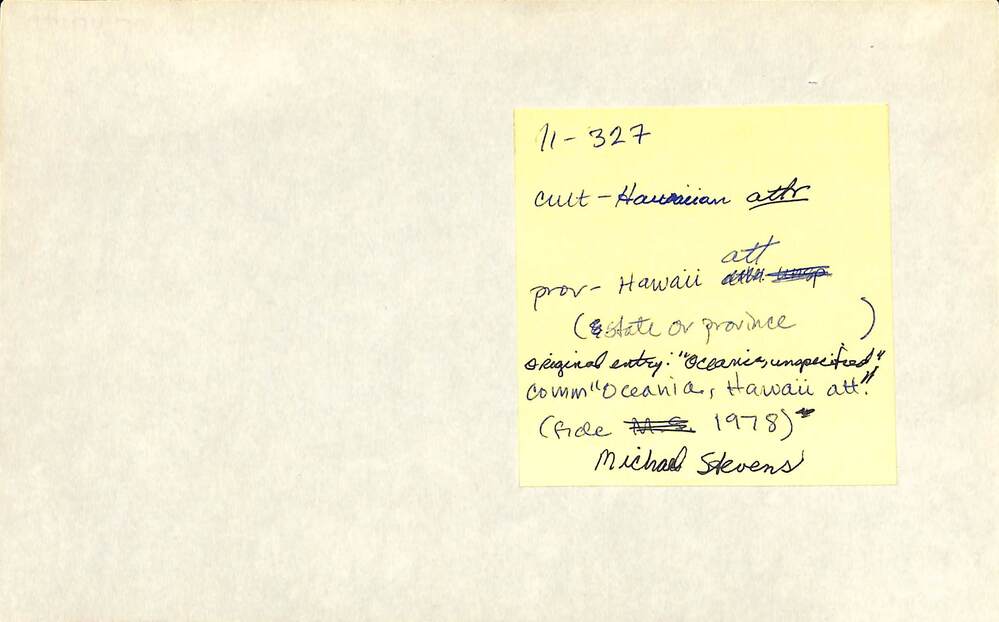 11-327
cult-Hawaiian attr
att
prov- Hawaii
(State or province)
original entry: "Oceania, unspecified"
comm "Oceania, Hawaii att."
(fide M.S. 1978)"
Michael Stevens